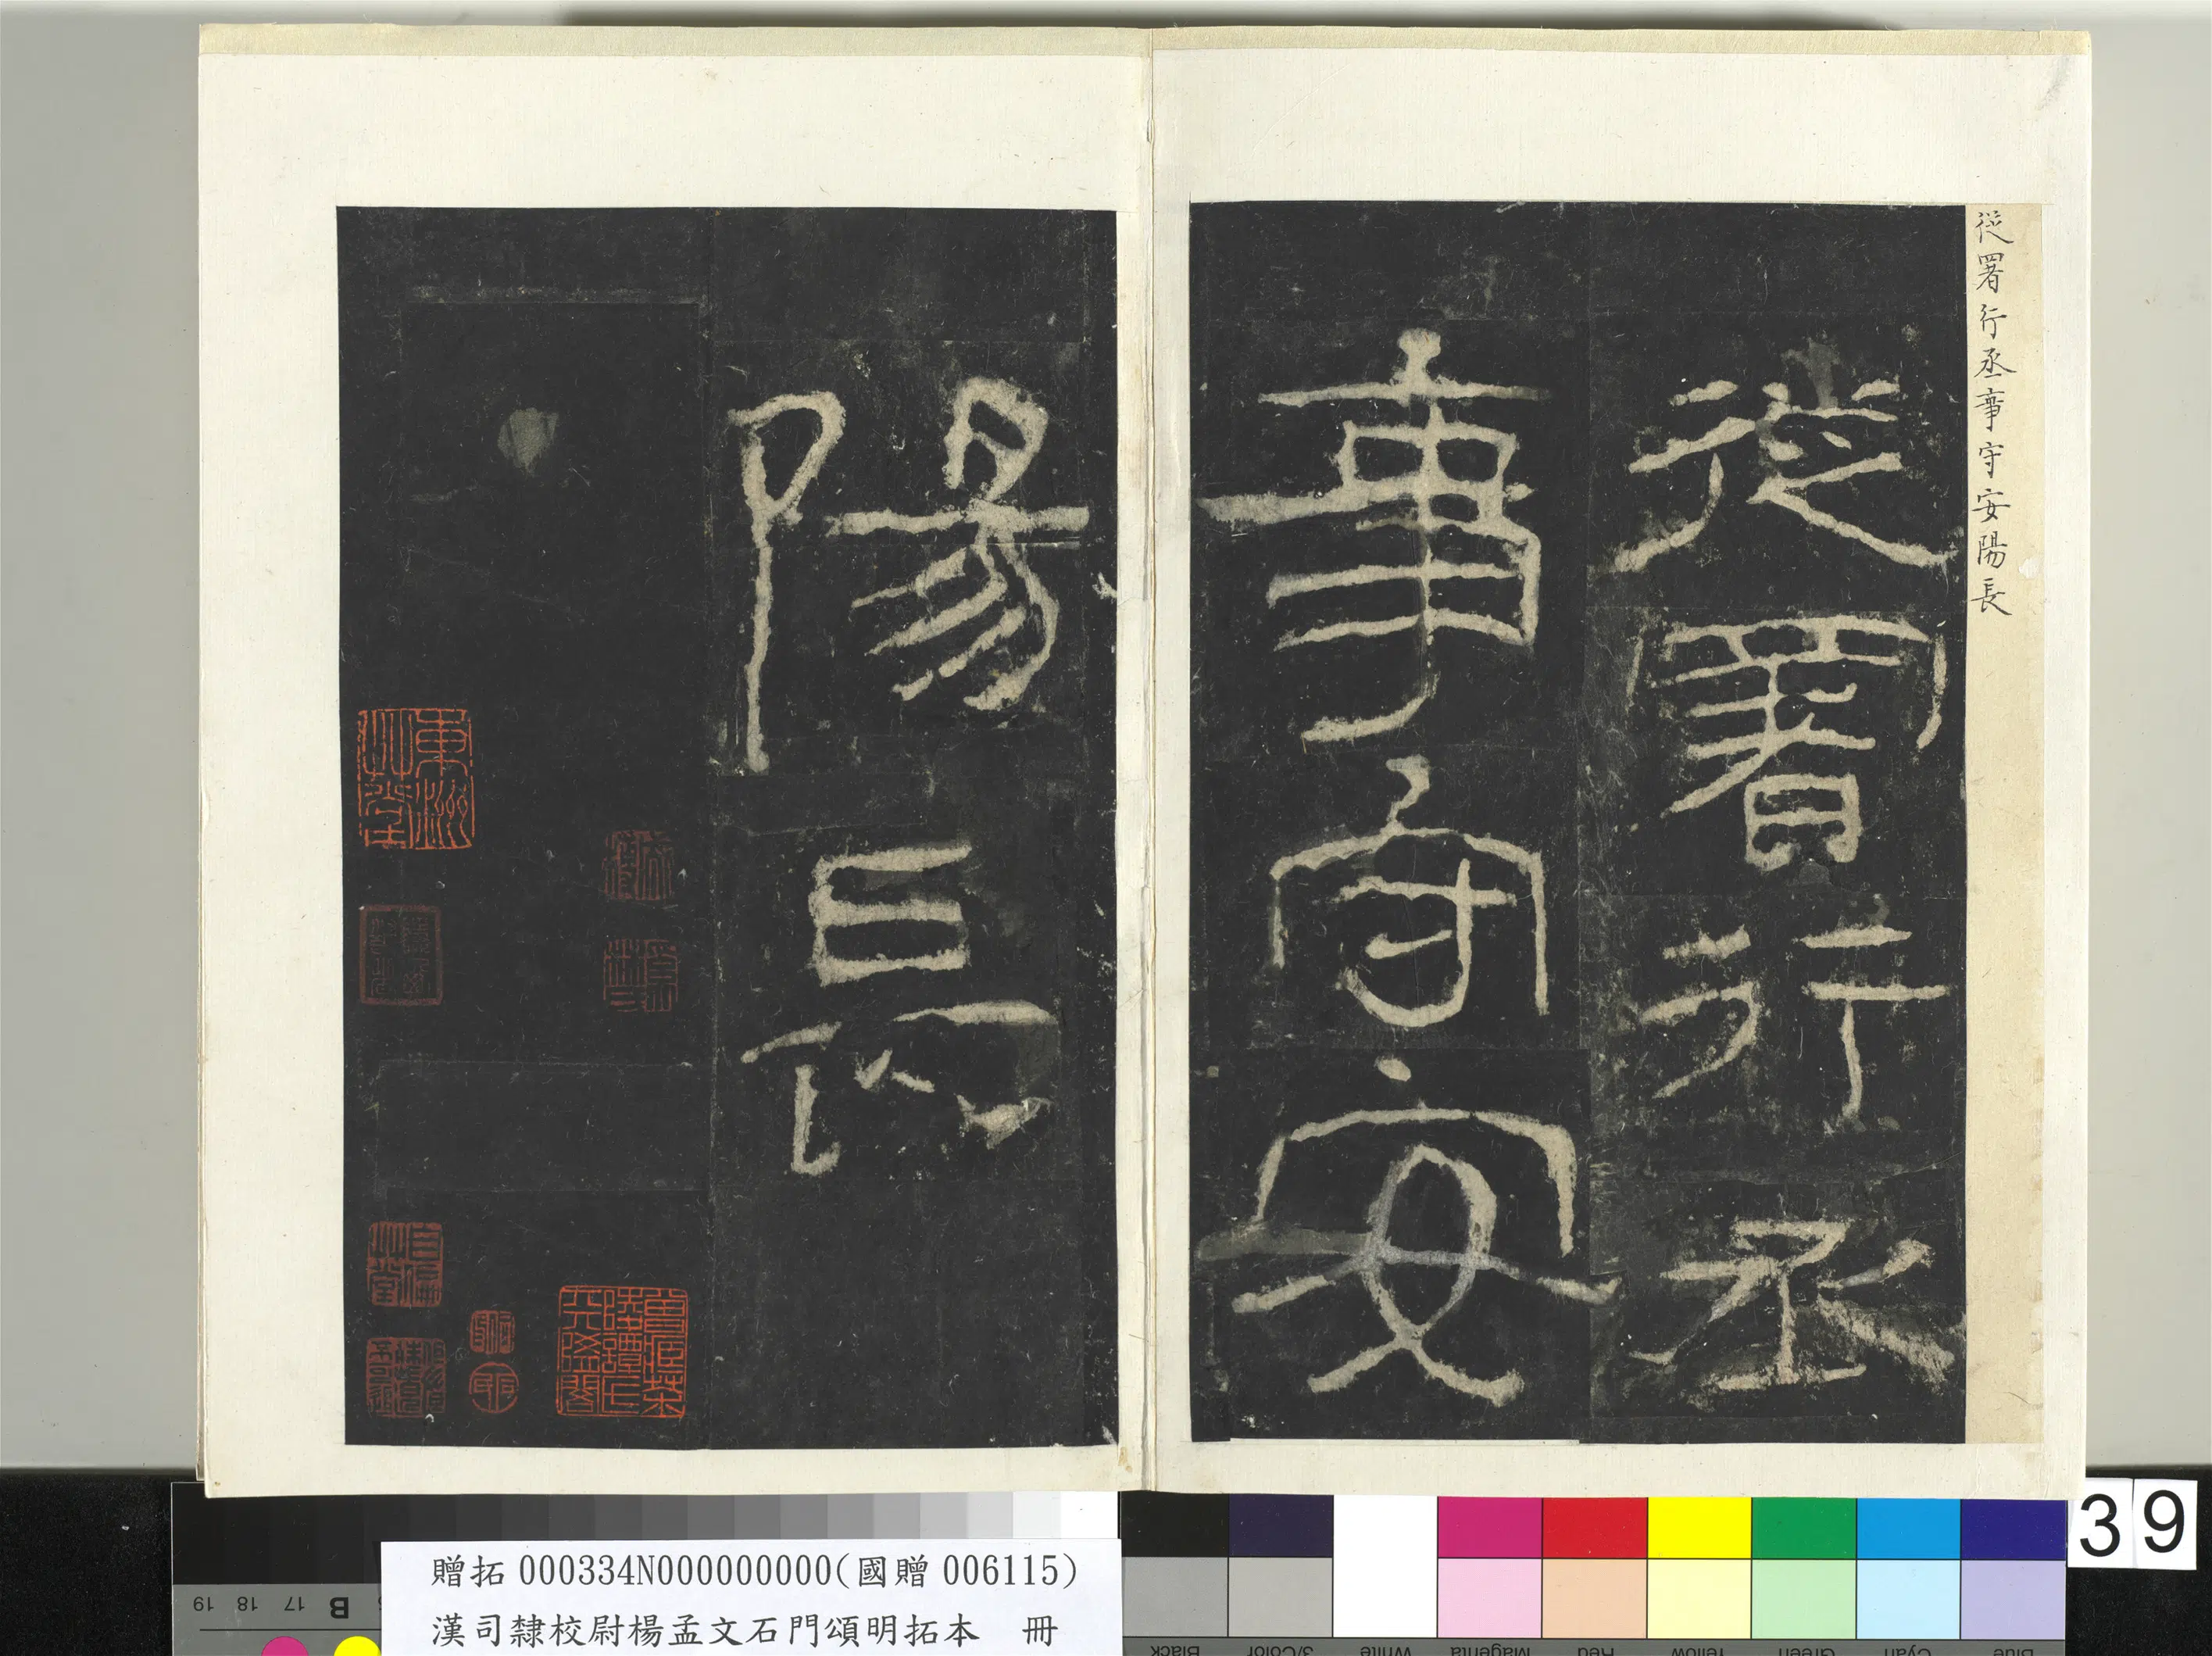 從署行丞事守安陽長
從署行丞
事守安
陽長
39
贈拓 000334N000000000(國贈 006115)
漢司隸校尉楊孟文石門頌明拓本 冊
19 18 17 B
Black 3/Color White Magenta Red Yellow Green Cyan Blue